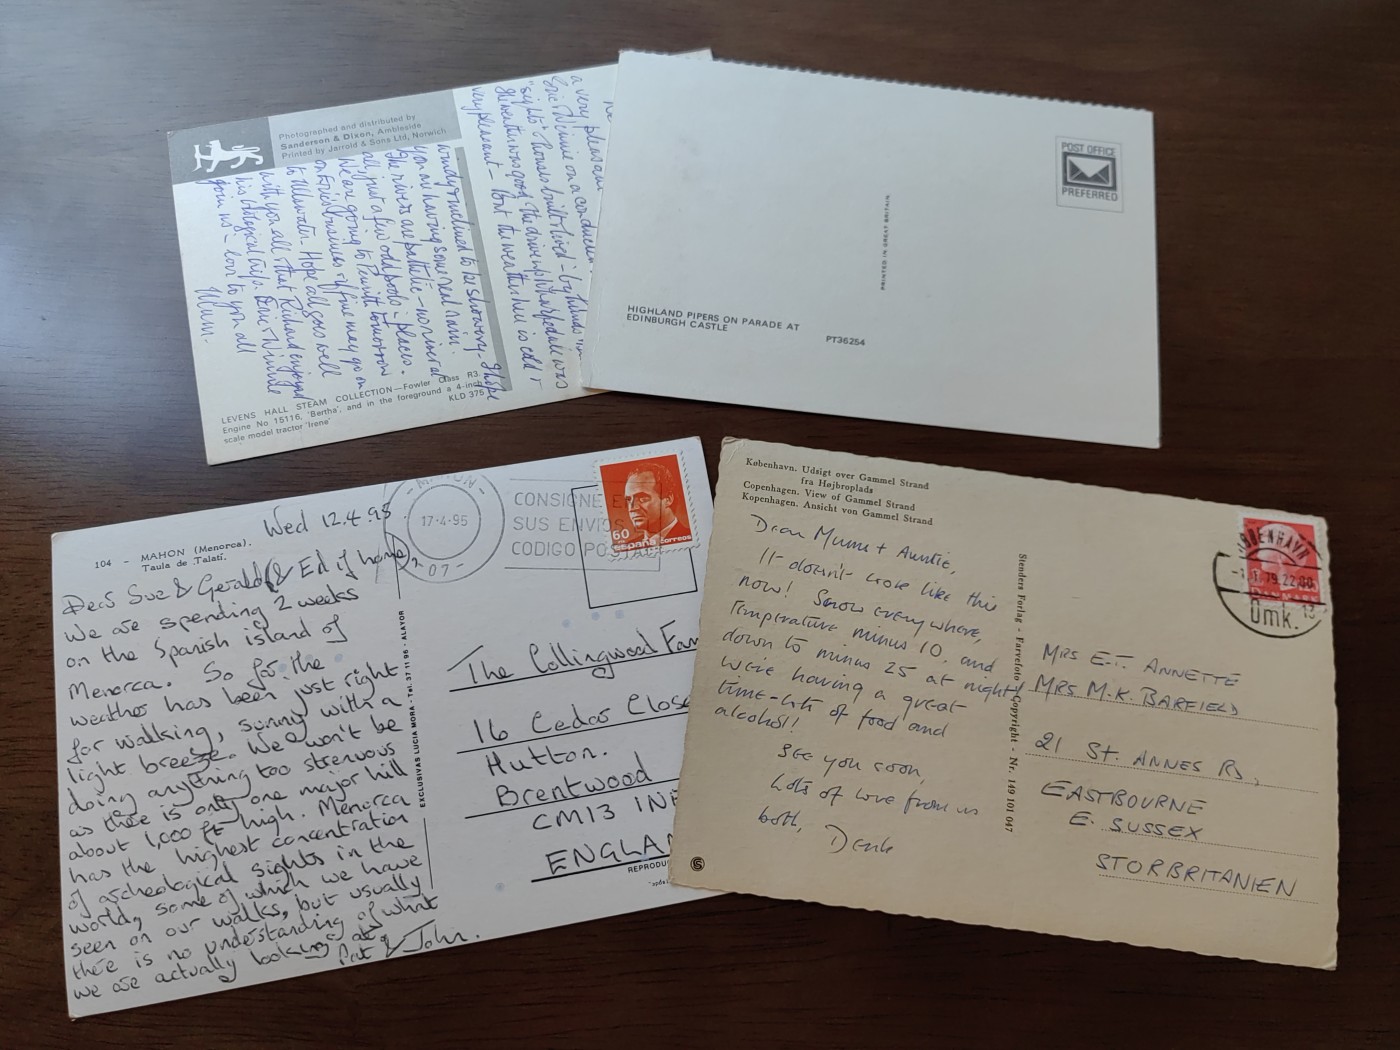 Photographed and distributed by
Sanderson & Dixon, Ambleside
Printed by Jarrold & Sons Ltd, Norwich
a very pleasant
Eric & Winnie on a conducted
"sights" houses built & lived - by
the weather was good. the drive
very pleasant - but the weather here is cold &
windy inclined to be showery - I hope
you are having some real rain.
The rivers are pathetic - no river at
all just a few odd pools in places.
We are going to Penrith tomorrow
on Eric's business & if fine may go on
to Ullswater. Hope all goes well
with you all & that Richard enjoyed
his trip. Eric & Winnie
join us in love to you all
Mum.
LEVENS HALL STEAM COLLECTION—Fowler Class R3.
Engine No 15116, 'Bertha', and in the foreground a 4-inch
scale model tractor 'Irene'
KLD 375
POST OFFICE
PREFERRED
PRINTED IN GREAT BRITAIN
HIGHLAND PIPERS ON PARADE AT
EDINBURGH CASTLE
PT36254
104 - MAHON (Menorca).
Taula de Talatí.
Wed 12.4.95
Dear Sue & Gerald (& Ed if home),
We are spending 2 weeks
on the Spanish island of
Menorca. So far the
weather has been just right
for walking, sunny with a
light breeze. We won't be
doing anything too strenuous
as there is only one major hill
about 1,000 ft high. Menorca
has the highest concentration
of archeological sights in the
world, some of which we have
seen on our walks, but usually
there is no understanding of what
we are actually looking at.
Pat & John.
EXCLUSIVAS LUCIA MORA - Tel. 37 11 96 - ALAYOR
17-4-95
- 07 -
CONSIGNE E
SUS ENVIOS
CODIGO POSTAL
60
españa correos
The Collingwood Fam
16 Cedar Close
Hutton.
Brentwood
CM13 1NF
ENGLA
REPRODUC
København. Udsigt over Gammel Strand
fra Højbroplads
Copenhagen. View of Gammel Strand
Kopenhagen. Ansicht von Gammel Strand
Dear Mum + Auntie,
It doesn't look like this
now! Snow everywhere,
temperature minus 10, and
down to minus 25 at night!
We're having a great
time - lots of food and
alcohol!
See you soon,
Lots of love from us
both,
Stenders Forlag - Farvefoto Copyright - Nr. 149 101 047
KØBENHAVN
-1.1.79.22
Omk. 13
MRS E.T. ANNETTE
MRS. M.K. BARFIELD
21 ST. ANNES RD,
EASTBOURNE
E. SUSSEX
STORBRITANIEN